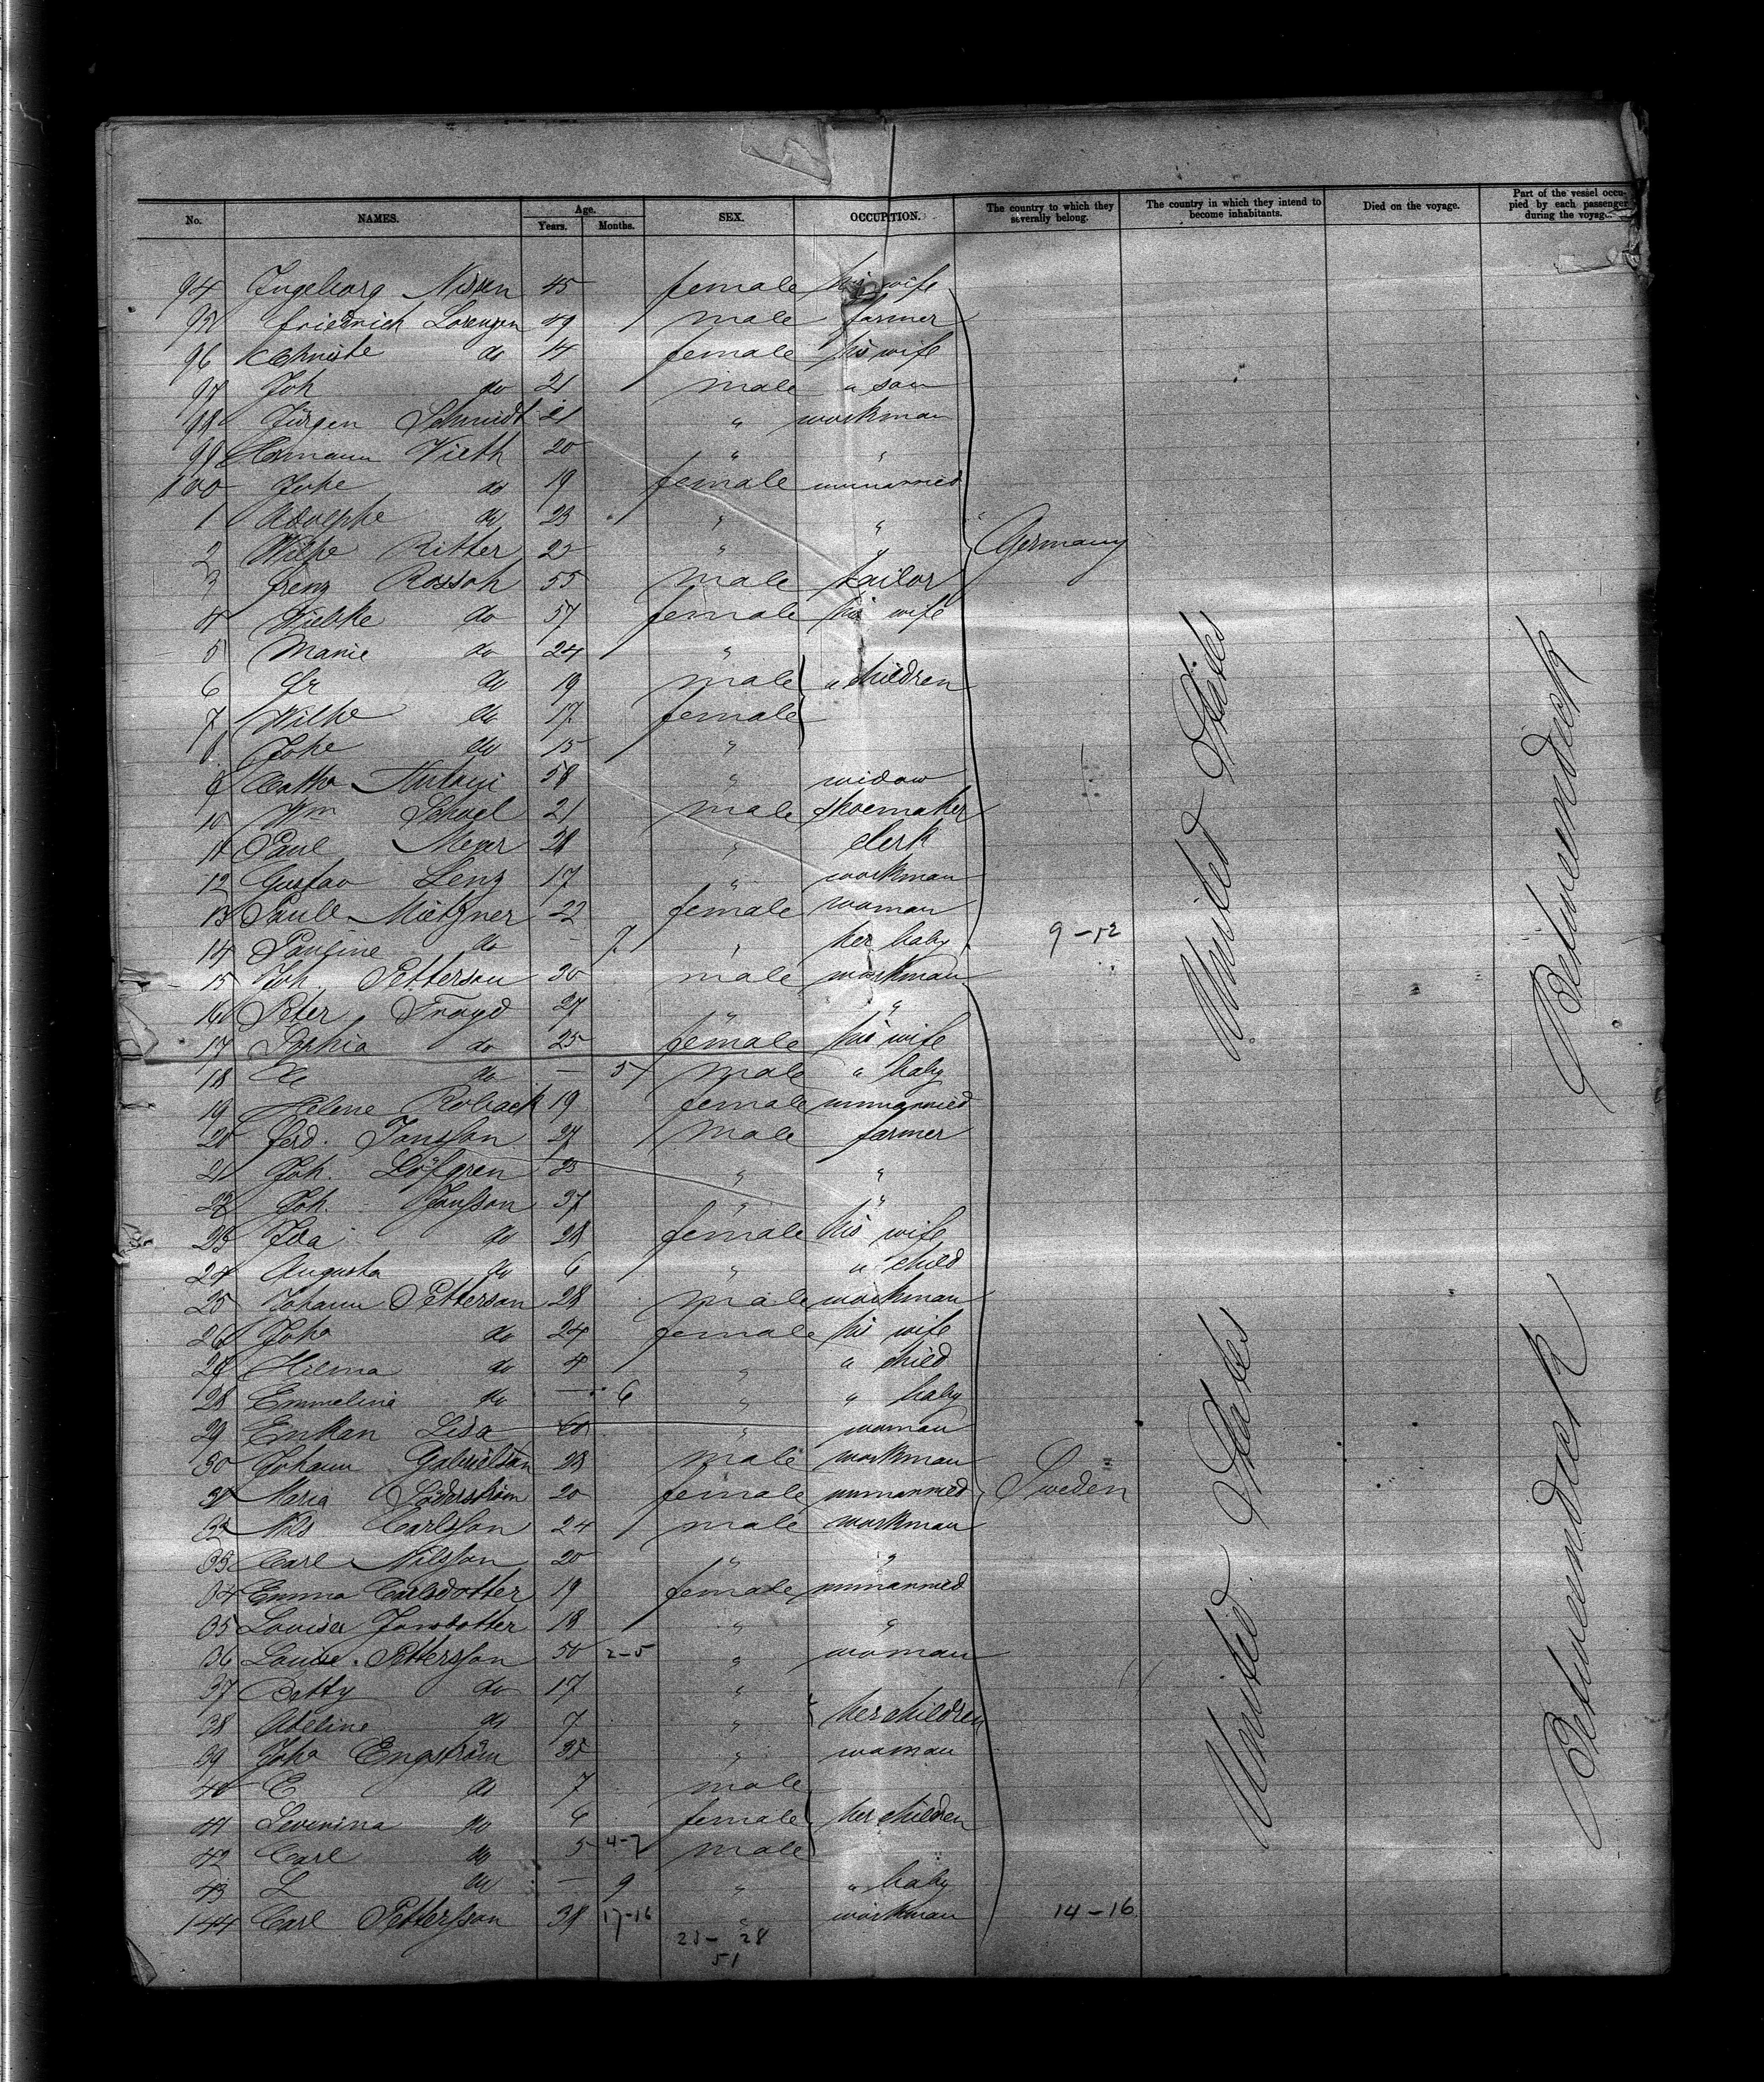 No. NAMES. Age. Years. Months. SEX. OCCUPATION. The country to which they severally belong. The country in which they intend to become inhabitants. Died on the voyage. Part of the vessel occupied by each passenger during the voyage.
94 Ingeborg Nissen 45 female his wife
95 Friedrich Lorenzen 49 male farmer
96 Christe do female his wife
97 Joh do 21 male " son
98 Jürgen Schmidt 21 " workman
99 Hermann Vieth 20 " "
100 Johe do 19 female unmarried
1 Adolphe do 23 " "
2 Wilhe Ritter 22 " " Germany
3 Frenz Rossoh 55 male tailor
4 Wiebke do 57 female his wife
5 Marie do 24 "
6 Fr do 19 male " children
7 Wilhe do 17 female
8 Johe do 15 "
9 Catha 58 " widow
10 Wm Schoel 21 male shoemaker
11 Paul Meyer 28 " clerk
12 Gustav Lenz 17 " workman
13 Paule Mietzner 22 female woman
14 Pauline do — 7 " her baby 9-12
15 Joh. Petterson 30 male workman
16 Peter Frayd 27 " "
17 Sophia do 25 female his wife
18 do — 5 male " baby
19 Helene Roback 19 female unmarried
20 Ferd. Jonsson 27 male farmer
21 Joh. Löfgren 23 " "
22 Joh. Jonsson 37 " "
23 Ida do 28 female his wife
24 Augusta do 6 " " child
25 Johann Petterson 28 male workman
26 Joha do 24 female his wife
27 Hilma do 4 " " child
28 Emmelina do — 6 " " baby
29 Enkan Lisa 60 " woman
30 Johann Gabrielson 28 male workman
31 Maria Söderström 20 female unmarried Sweden
32 Nils Carlsson 24 male workman
33 Carl Nilsson 20 " "
34 Emma Carlsdotter 19 female unmarried
35 Louisa Jonsdotter 18 " "
36 Louise Pettersson 50 2-5 " woman
37 Betty do 17 "
38 Adeline do 7 " her children
39 Joha Engström 38 " woman
40 E do 7 male
41 Severina do 6 female her children
42 Carl do 5 4-7 male
43 L do — 9 " " baby
144 Carl Pettersson 38 17-16 " workman 14-16
23- 28
51
United States
Betweendeck
United States
Betweendeck